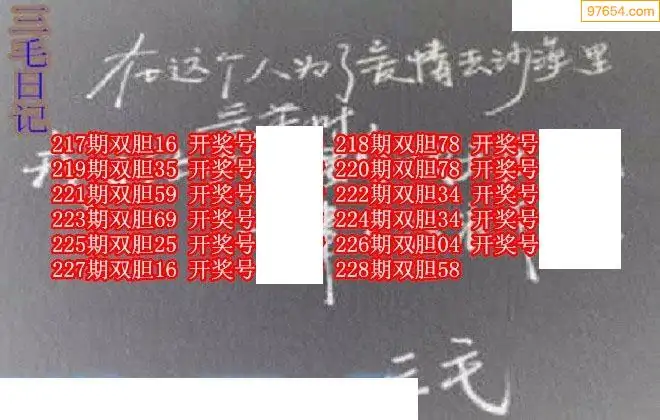 97654.com
三毛日记
在这个人为了爱情去沙漠里
217期双胆16 开奖号
218期双胆78 开奖号
219期双胆35 开奖号
220期双胆78 开奖号
221期双胆59 开奖号
222期双胆34 开奖号
223期双胆69 开奖号
224期双胆34 开奖号
225期双胆25 开奖号
226期双胆04 开奖号
227期双胆16 开奖号
228期双胆58
三毛